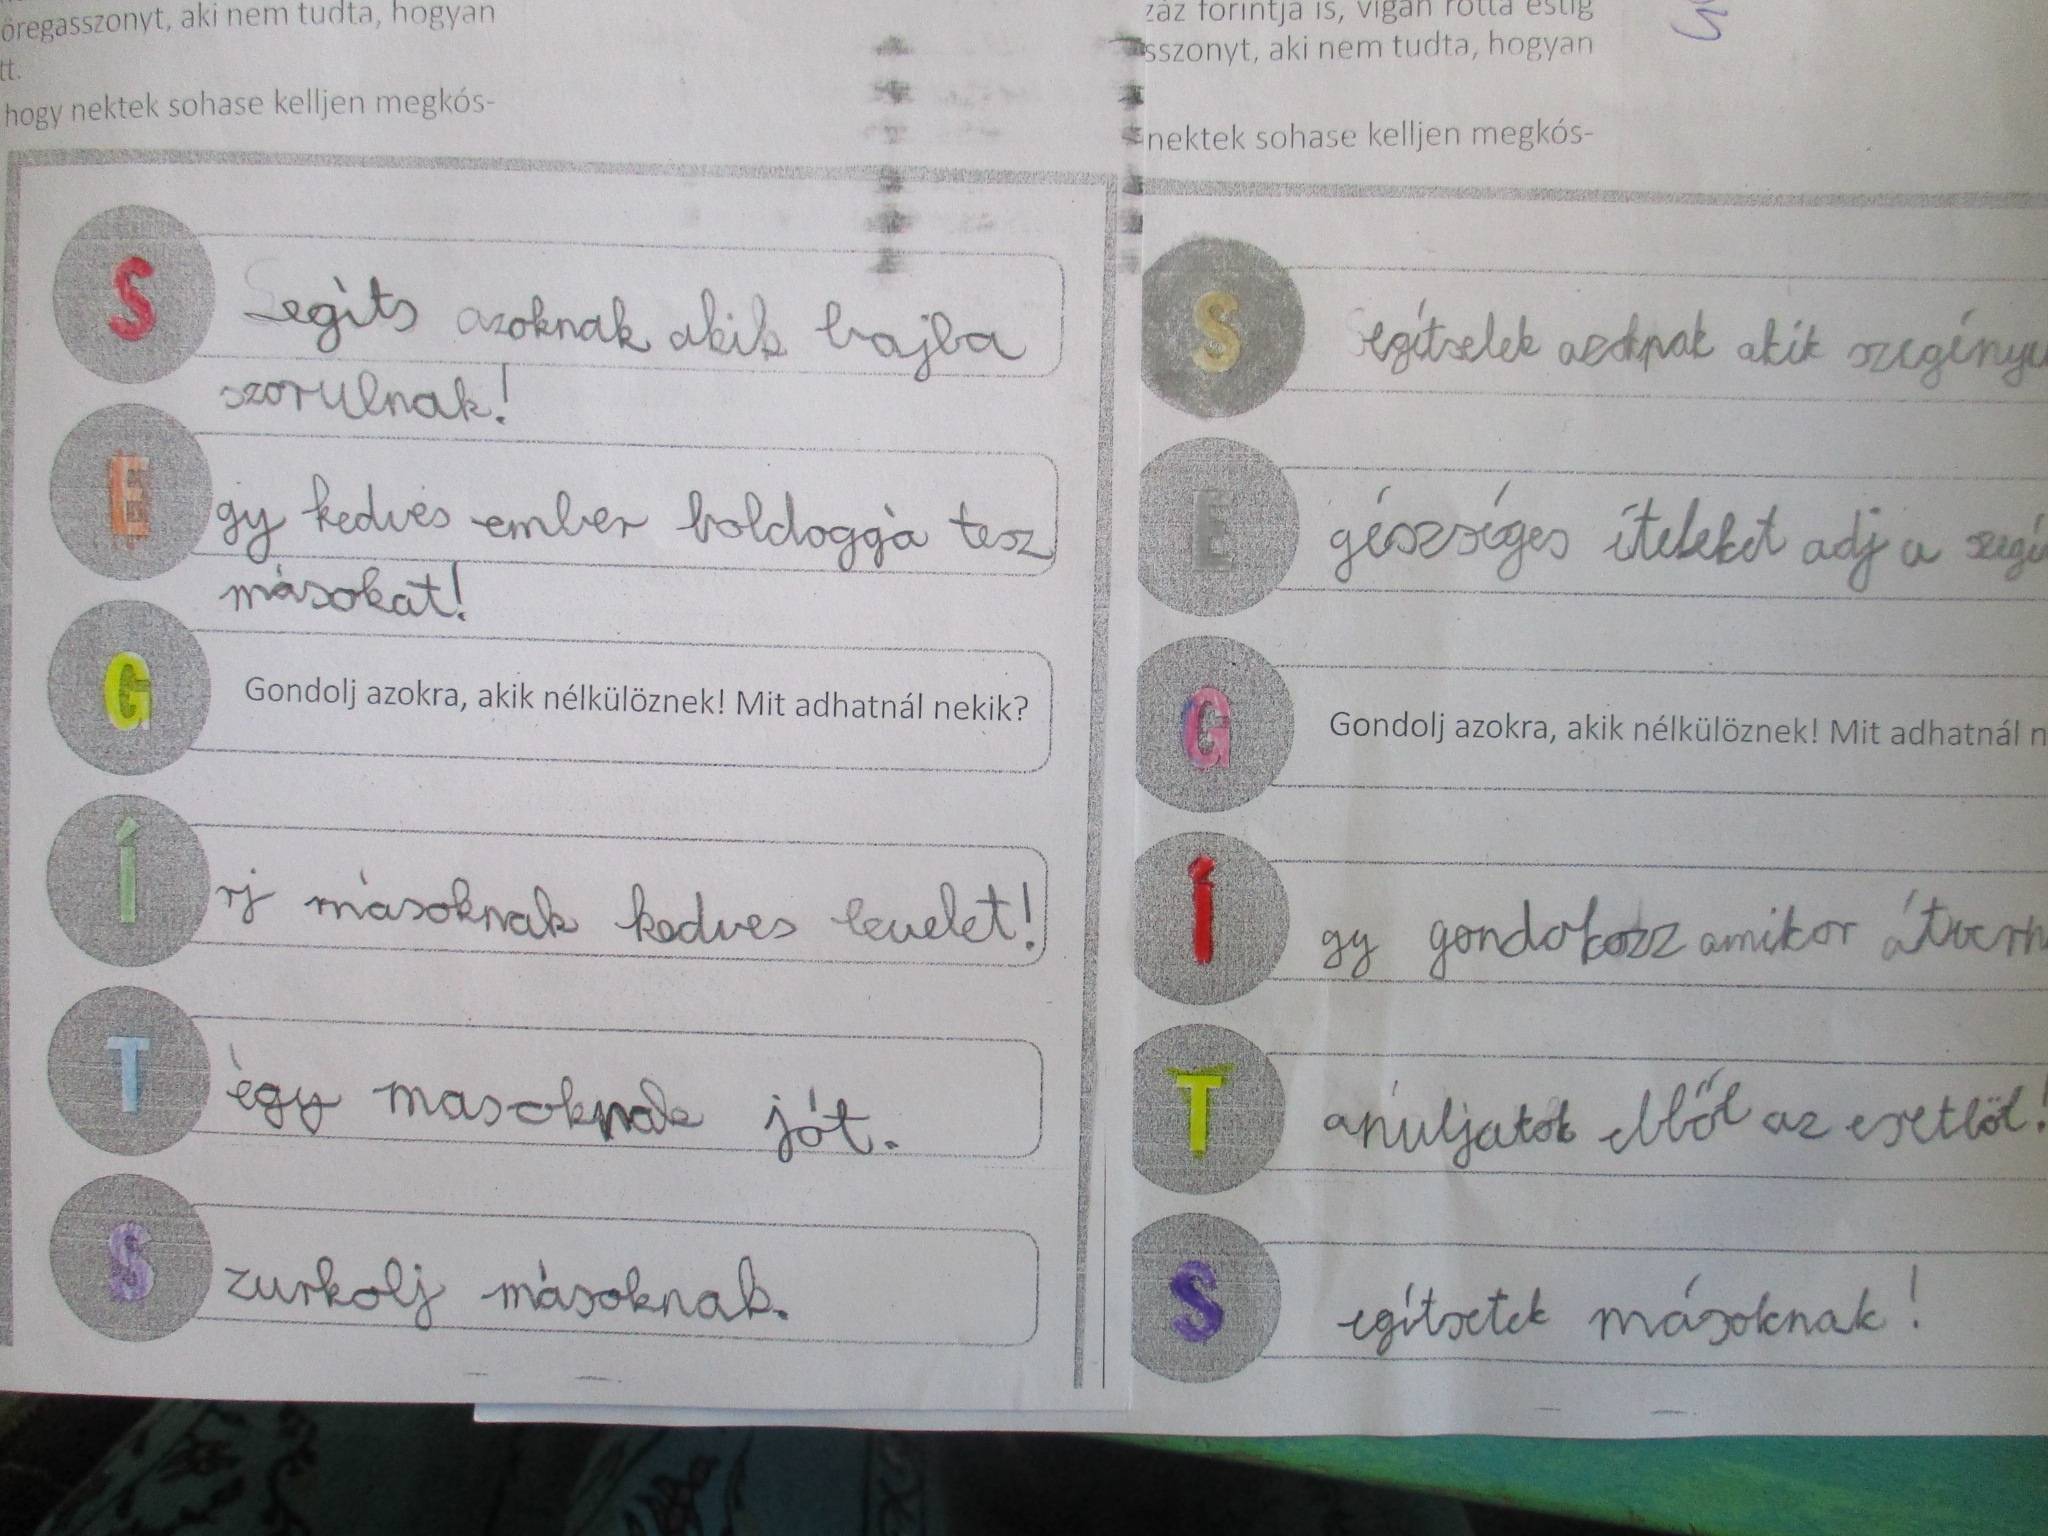 öregasszonyt, aki nem tudta, hogyan
tt.
hogy nektek sohase kelljen megkós-
S Segits azoknak akik bajba
szorulnak!
E gy kedves ember boldoggá tesz
másokat!
G Gondolj azokra, akik nélkülöznek! Mit adhatnál nekik?
Í rj másoknak kedves levelet!
T égy masoknak jót.
S zurkolj másoknak.
záz forintja is, vígan rótta estig
sszonyt, aki nem tudta, hogyan
nektek sohase kelljen megkós-
S Segítselek azoknak akik szegénye
E gészséges ételeket adj a szegé
G Gondolj azokra, akik nélkülöznek! Mit adhatnál n
Í gy gondolkozz amikor átverh
T anúljatok ebből az esetböl!
S egítsetek másoknak!